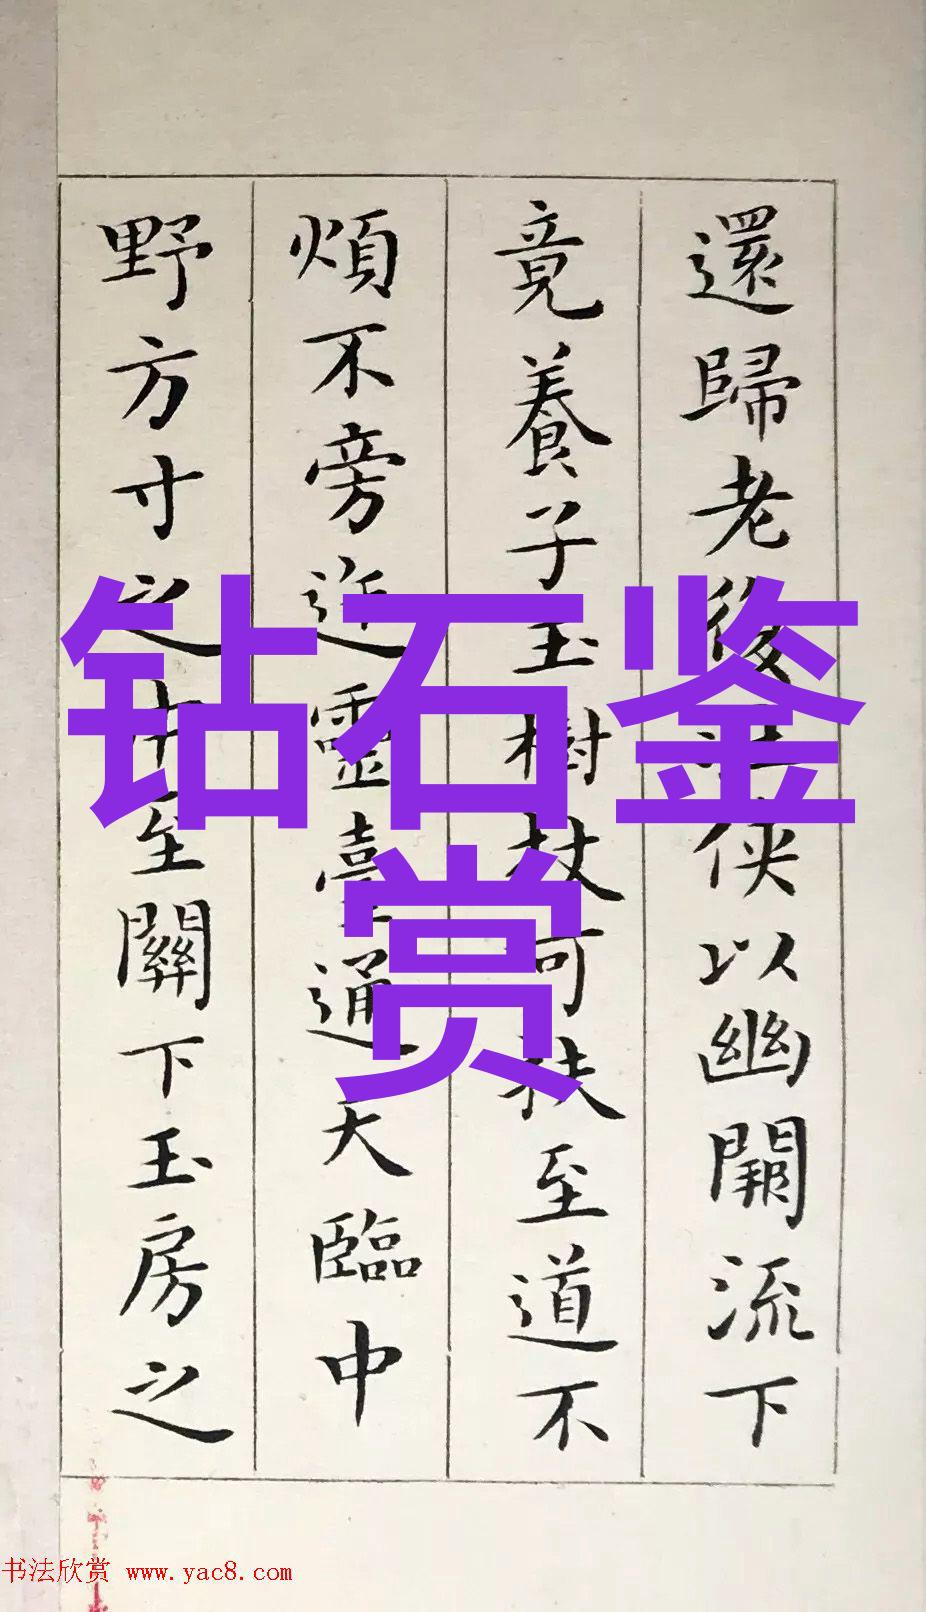 還歸老侠以幽闕流下
竟養子玉樹杖可扶至道不
煩不旁迕靈臺通天臨中
野方寸之中至關下玉房之
钻石鉴
赏
书法欣赏 www.yac8.com